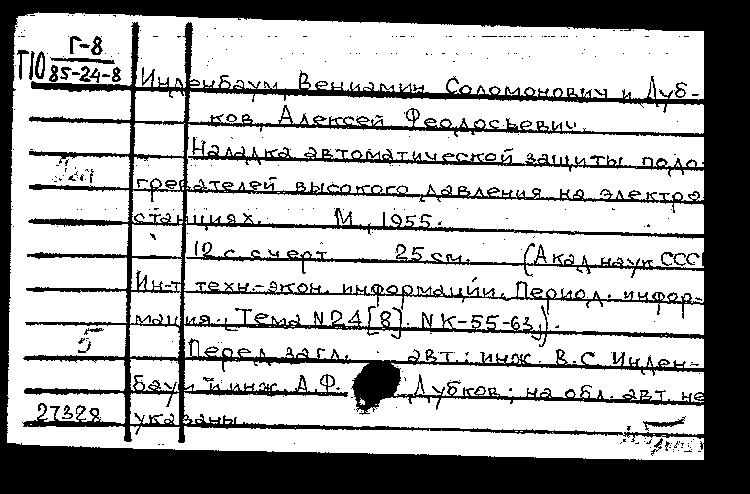 Г-8
Т10 85-24-8
Инденбаум, Вениамин Соломонович и Дуб-
ков, Алексей Феодосьевич.
Наладка автоматической защиты подо-
гревателей высокого давления на электро-
станциях. М., 1955.
12 с. с черт. 25 см. (Акад. наук СССР
Ин-т техн.-экон. информации. Период. инфор-
мация. Тема N24[8]. NК-55-63).
5
Перед загл. авт.: инж. В.С. Инден-
баум и инж. А.Ф. Дубков; на обл. авт. не
27328 указаны.